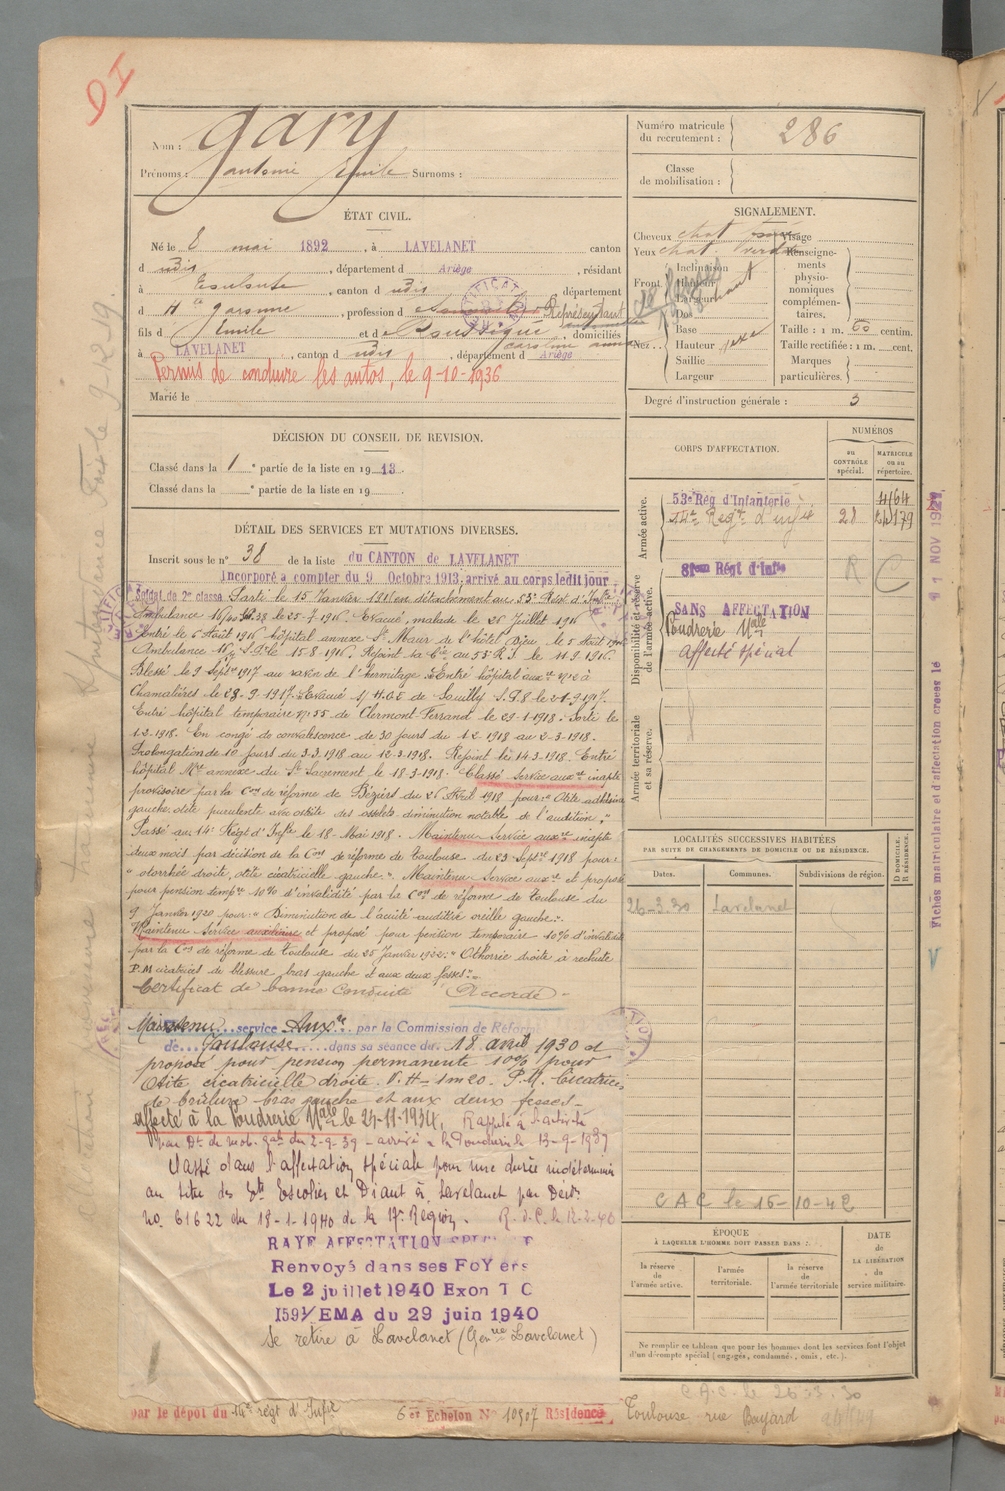 DI
Nom : Gary
Prénoms : Antonin Emile Surnoms :
Numéro matricule du recrutement : 286
Classe de mobilisation :
ÉTAT CIVIL.
Né le 8 mai 1892, à LAVELANET canton
d udis, département d Ariège, résidant
à Toulouse, canton d udis département
d Hte Garonne, profession d Représentant
fils d Emile et d domiciliés
à LAVELANET, canton d udis, département d Ariège
Permis de conduire les autos, le 9-10-1936
Marié le
SIGNALEMENT.
Cheveux chat Visage
Yeux chat. Renseignements physionomiques complémentaires.
Front Inclinaison
Hauteur
Largeur
Nez Dos
Base
Hauteur
Saillie
Largeur
Taille : 1 m. 60 centim.
Taille rectifiée : 1 m. cent.
Marques particulières.
Degré d'instruction générale : 3
DÉCISION DU CONSEIL DE REVISION.
Classé dans la 1e partie de la liste en 1913.
Classé dans la e partie de la liste en 19
DÉTAIL DES SERVICES ET MUTATIONS DIVERSES.
Inscrit sous le n° 38 de la liste du CANTON de LAVELANET
Incorporé a compter du 9 Octobre 1913, arrivé au corps ledit jour
Soldat de 2e classe. Parti le 15 Janvier 191 en détachement au 53e Régt d'Infie
Ambulance 16/20 le 25-7-1916. Evacué, malade le 26 Juillet 1916
Entré le 6 Août 1916 hôpital annexe St Maur le 5 Août 1916
Ambulance S.P. le 15-8-1916. Rejoint la Cie au 53e R.I. le 11-9-1916.
Blessé le 9 Septre 1917 au ravin de l'hermitage. Entré hôpital auxre n°2 à
Chamalières le 28-9-1917. Evacué s/ H.O.E de Souilly S.P.8 le 21-9-1917.
Entré hôpital temporaire n°55 de Clermont-Ferrand le 29-1-1918. Sorti le
1-2-1918. En congé de convalescence de 30 jours du 1-2-1918 au 2-3-1918.
Prolongation de 10 jours du 3-3-1918 au 12-3-1918. Rejoint le 14-3-1918. Entré
hôpital Mre annexe du St Sacrement le 18-3-1918. Classé Service auxre inapte
provisoire par la Con de réforme de Béziers du 26 Avril 1918 pour : "Otite adhésive
gauche, otite purulente avec ostéite des osselets diminution notable de l'audition."
Passé au 14e Régt d'Infie le 18 Mai 1918. Maintenu Service auxre inapte
deux mois par décision de la Con de réforme de Toulouse du 23 Septre 1918 pour :
"otorrhée droite, otite cicatricielle gauche". Maintenu Service auxre et proposé
pour pension tempre 10% d'invalidité par la Con de réforme de Toulouse du
9 Janvier 1920 pour : "Diminution de l'acuité auditive oreille gauche".
Maintenu Service auxiliaire et proposé pour pension temporaire 10% d'invalidité
par la Con de réforme de Toulouse du 25 Janvier 1922 : "Othorrée droite à rechute
P.M cicatrices de blessure bras gauche et aux deux fesses".
Certificat de bonne conduite "Accordé"
Maintenu service Auxre par la Commission de Réforme
de Toulouse dans sa séance du 18 avril 1930 et
proposé pour pension permanente 10% pour
Otite cicatricielle droite. V.H = 1m20. P.M. Cicatrices
de brûlure bras gauche et aux deux fesses
affecté à la Poudrerie Nale le 24-11-1934. Rappelé à l'activité
par Dt de mob. gale du 2-9-39 - arrivé à la Poudrerie le 13-9-1939
Classé dans l'affectation spéciale pour une durée indéterminée
au titre des Ets Escolier et Diaut à Lavelanet par Décis.
no. 61622 du 18-1-1940 de la 17e Région. R.d.C. le 12-2-40
RAYE AFFECTATION
Renvoyé dans ses FoYers
Le 2 juillet 1940 Exon T O
1591/EMA du 29 juin 1940
se retire à Lavelanet (Genie Lavelanet)
CORPS D'AFFECTATION.
NUMÉROS
au CONTRÔLE spécial.
MATRICULE ou au répertoire.
Armée active.
53e Rég d'Infanterie 4164
14e Régt d'infie 28
Disponibilité et réserve de l'armée active.
81eme Régt d'Infie R C
SANS AFFECTATION
Poudrerie Nale
affecté spécial
Armée territoriale et sa réserve.
LOCALITÉS SUCCESSIVES HABITÉES
PAR SUITE DE CHANGEMENTS DE DOMICILE OU DE RÉSIDENCE.
Dates. Communes. Subdivisions de région. D DOMICILE. R RÉSIDENCE.
26-3.30 Lavelanet
C A C le 16-10-42
ÉPOQUE
À LAQUELLE L'HOMME DOIT PASSER DANS :
la réserve de l'armée active.
l'armée territoriale.
la réserve de l'armée territoriale
DATE de LA LIBÉRATION du service militaire.
Ne remplir ce tableau que pour les hommes dont les services font l'objet
d'un décompte spécial (engagés, condamnés, omis, etc.).
C.A.C. le 26-3-30
par le dépôt du 14e régt d'Infie 6e Echelon N° 10907 Résidence Toulouse rue Bayard
Fiches matriculaire et d'affectation créées le 11 NOV 1927